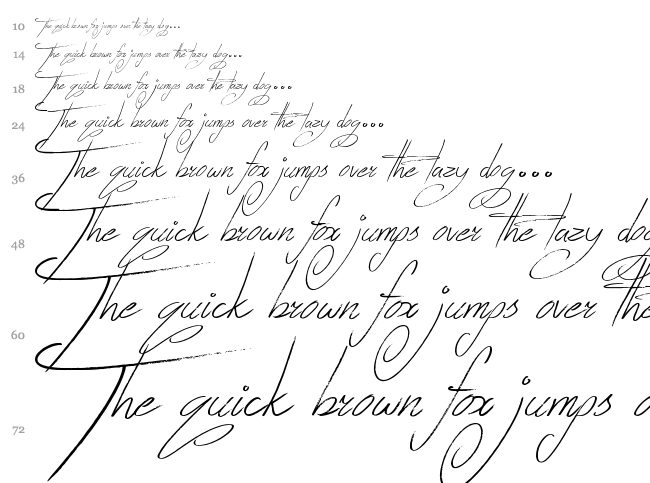 10 The quick brown fox jumps over the lazy dog...
14 The quick brown fox jumps over the lazy dog...
18 The quick brown fox jumps over the lazy dog...
24 The quick brown fox jumps over the lazy dog...
36 The quick brown fox jumps over the lazy dog...
48 The quick brown fox jumps over the lazy do
60 The quick brown fox jumps over the
72 The quick brown fox jumps o